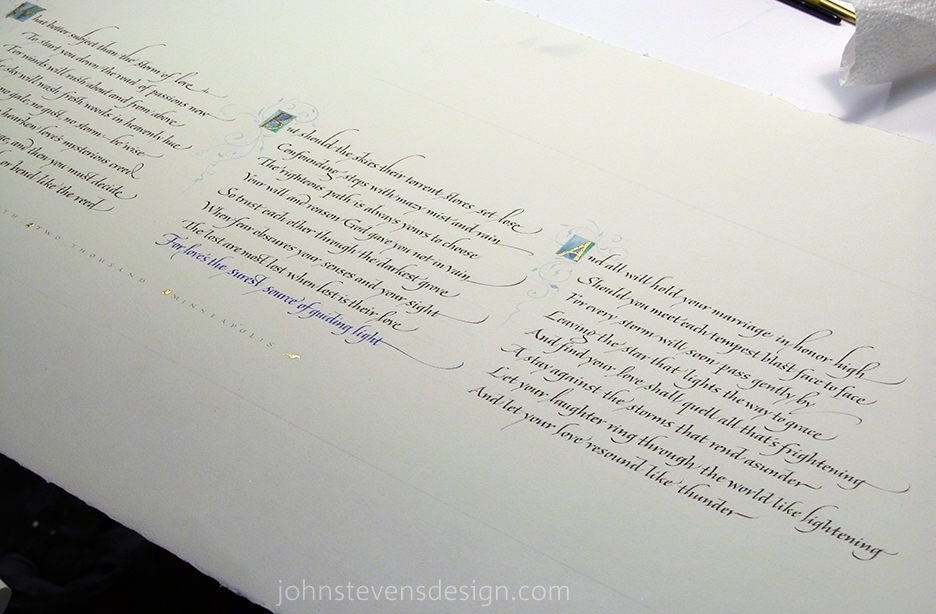 What better subject than the storm of love
To start you down the road of passions new
For minds will rush about and from above
sky will wash fresh woods in heavenly hue
no gale, no gust, no storm – be wise
hearken love's mysterious creed
and then you must decide
or bend like the reed
But should the skies their torrent stores set lose
Confounding steps with mazy mist and rain
The righteous path is always yours to choose
Your will and reason God gave you not in vain
So trust each other through the darkest grove
When fear obscures your senses and your sight
The lost are most lost when lost is their love
For love's the surest source of guiding light
And all will hold your marriage in honor high
Should you meet each tempest blast face to face
For every storm will soon pass gently by
Leaving the star that lights the way to grace
And find your love shall quell all that's frightening
A stay against the storms that rend asunder
Let your laughter ring through the world like lightening
And let your love resound like thunder
TH TWO THOUSAND MINNEAPOLIS
johnstevensdesign.com